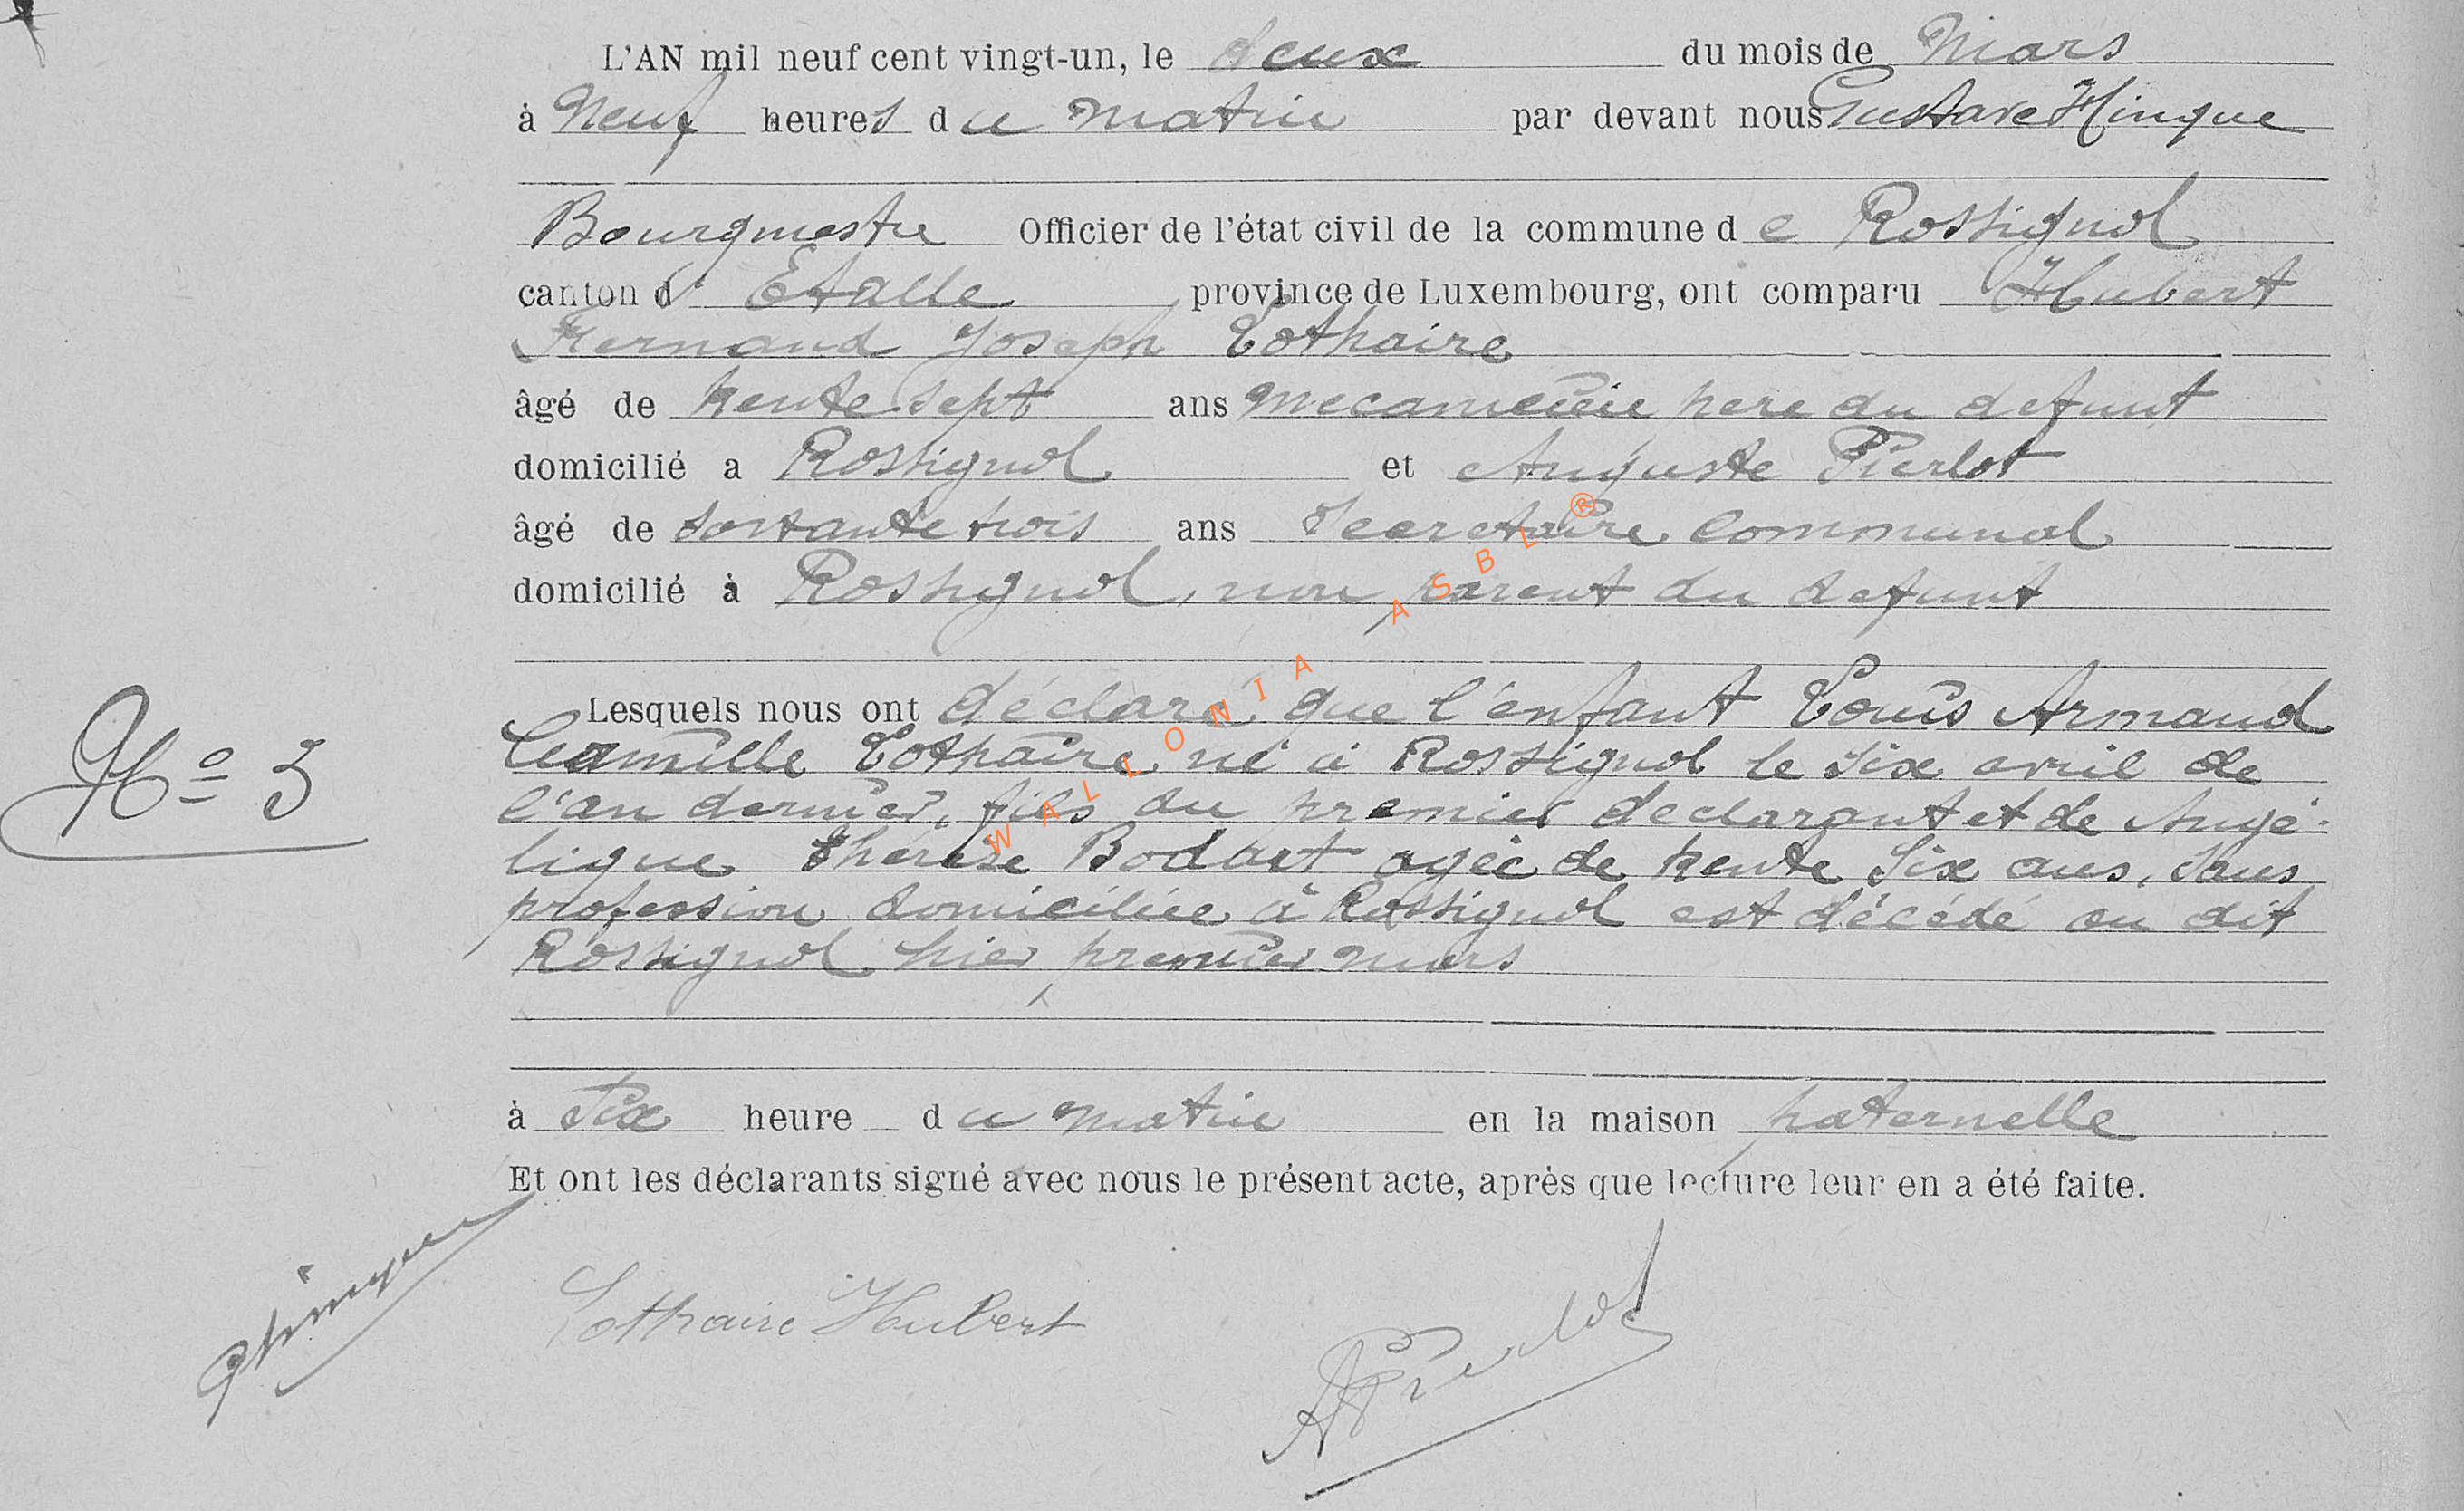 L'AN mil neuf cent vingt-un, le deux du mois de Mars
à Neuf heures du matin par devant nous Gustave Hinque
Bourgmestre Officier de l'état civil de la commune de Rossignol
canton d' Etalle province de Luxembourg, ont comparu Hubert
Fernand Joseph Lothaire
âgé de trente sept ans mecanicien pere du defunt
domicilié a Rossignol et Auguste Pierlot
âgé de soixante trois ans Secretaire communal
domicilié à Rossignol, non parent du defunt
Lesquels nous ont déclaré que l'enfant Louis Armand
Camille Lothaire né à Rossignol le six avril de
N° 3
l'an dernier, fils du premier declarant et de Angé-
lique thérèse Bodart agée de trente six ans, sans
profession domiciliée à Rossignol est décédé au dit
Rossignol hier, premier mars
à six heure du matin en la maison paternelle
Et ont les déclarants signé avec nous le présent acte, après que lecture leur en a été faite.
GHinque
Lothaire Hubert
APierlot
WALLONIA ASBL ®